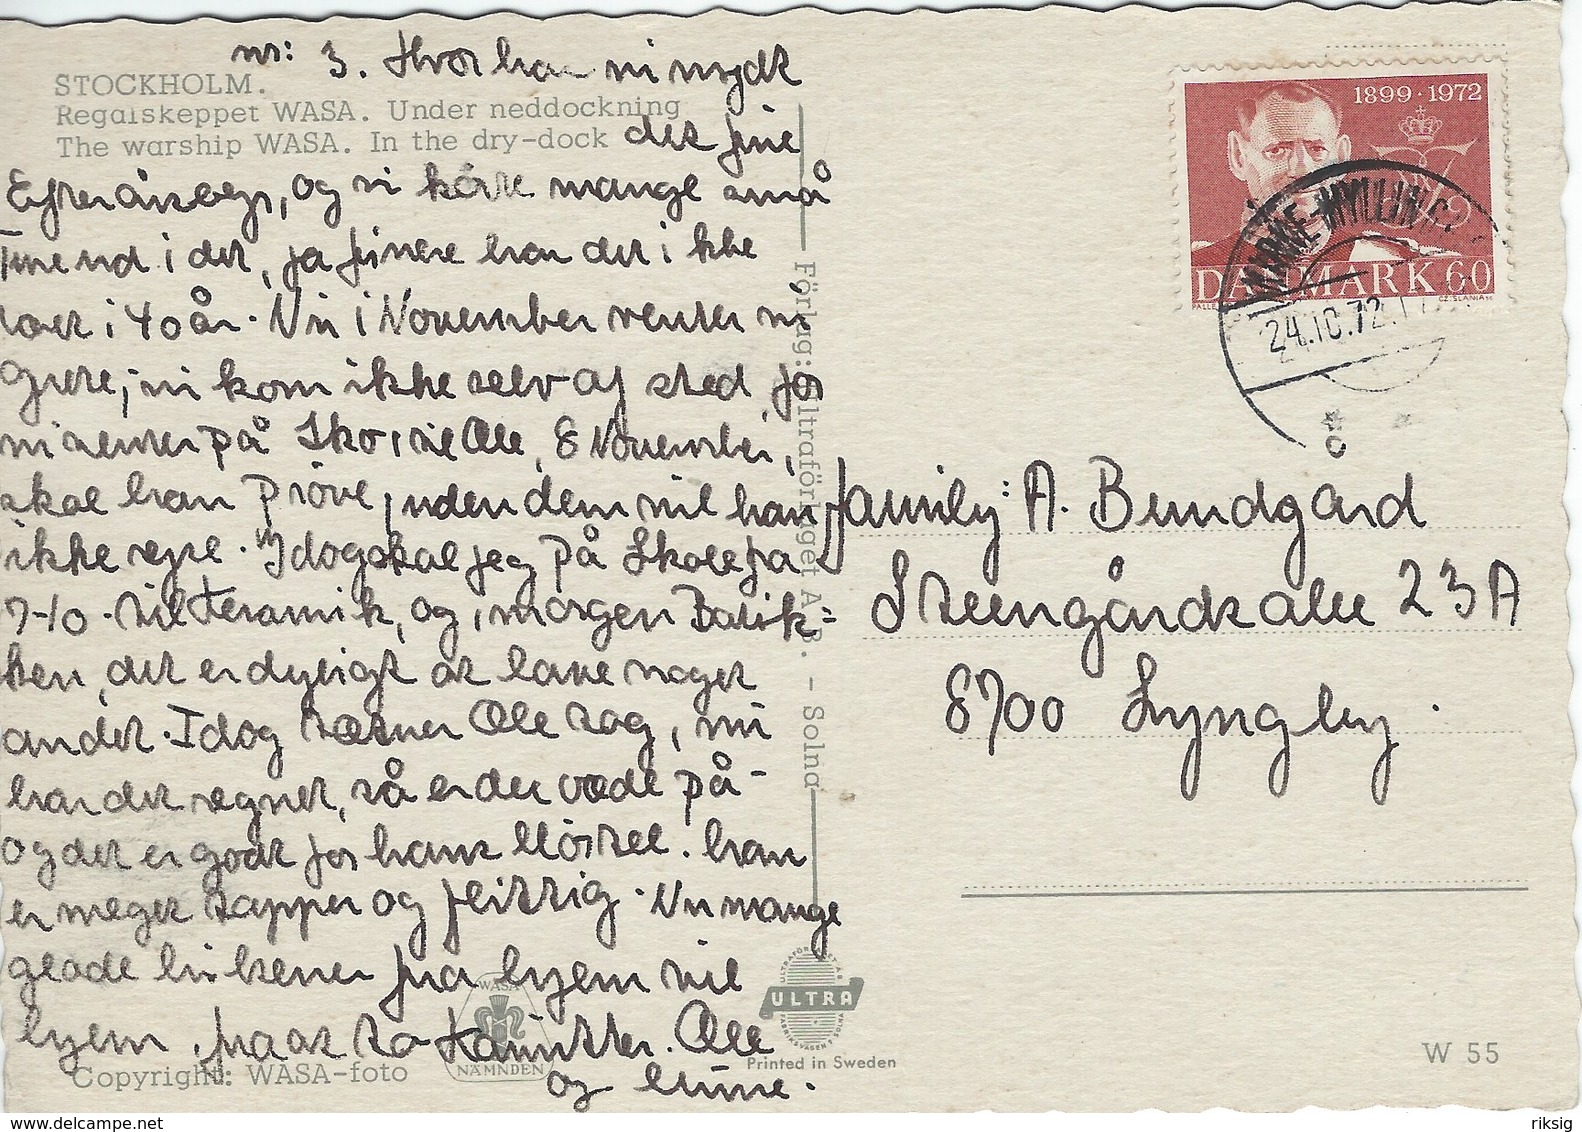 nr: 3. Hvor har vi nydt
STOCKHOLM.
Regalskeppet WASA. Under neddockning
The warship WASA. In the dry-dock
det fine
Efterårsvejr, og vi køre mange små
Ture ud i det, ja finere har det ikke
været i 40 år. Nu i November venter vi
, vi kom ikke selv af sted for
vi venter på Ole, 8 November,
skal han prøve, uden dem vil han
ikke rejse. I dag skal jeg på Skole fra
7-10. til Keramik, og i morgen Batik-
ken, det er dejligt at lave noget
andet. I dag Ole tag, nu
har det regnet, så er der våde på-
og det er godt for hans Mörtel. han
er meget tapper og fleissig. Nu mange
glade hilsener fra hjem til
hjem. fra os to Ole
og
Förlag: Ultraförlaget A.-B. - Solna
Copyright: WASA-foto
WASA
NÄMNDEN
ULTRA
Printed in Sweden
W 55
1899 · 1972
DANMARK 60
CZ. SLANIA SC
24.10.72.
family: A. Bundgård
Steengårdsalle 23A
8700 Lyngby.
delcampe.net
riksig